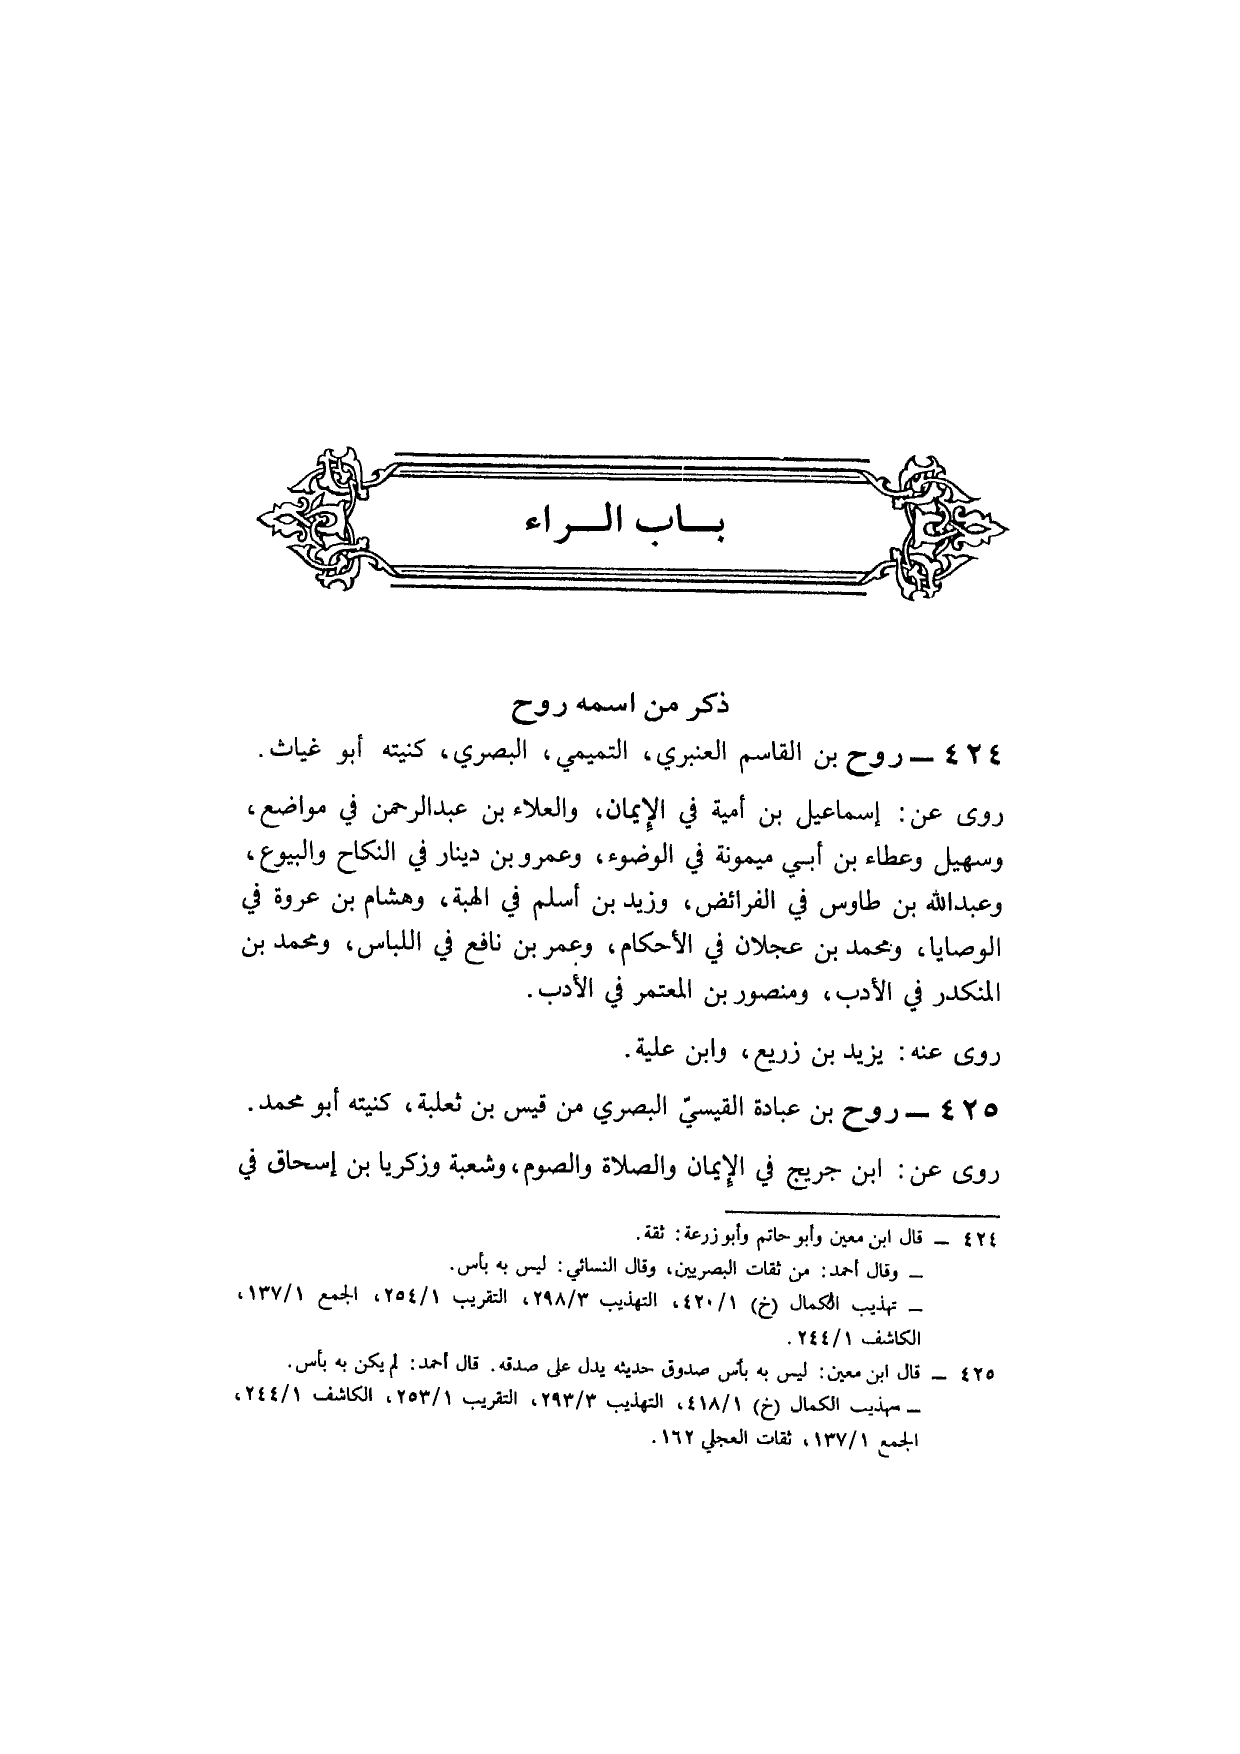 بـــاب الـــراء
ذكر من اسمه روح
٤٢٤ ــ روح بن القاسم العنبري، التميمي، البصري، كنيته أبو غياث.
روى عن: إسماعيل بن أمية في الإِيمان، والعلاء بن عبدالرحمن في مواضع،
وسهيل وعطاء بن أبي ميمونة في الوضوء، وعمرو بن دينار في النكاح والبيوع،
وعبدالله بن طاوس في الفرائض، وزيد بن أسلم في الهبة، وهشام بن عروة في
الوصايا، ومحمد بن عجلان في الأحكام، وعمر بن نافع في اللباس، ومحمد بن
المنكدر في الأدب، ومنصور بن المعتمر في الأدب.
روى عنه: يزيد بن زريع، وابن علية.
٤٢٥ ــ روح بن عبادة القيسيّ البصري من قيس بن ثعلبة، كنيته أبو محمد.
روى عن: ابن جريج في الإِيمان والصلاة والصوم، وشعبة وزكريا بن إسحاق في
٤٢٤ ــ قال ابن معين وأبو حاتم وأبو زرعة: ثقة.
ــ وقال أحمد: من ثقات البصريين، وقال النسائي: ليس به بأس.
ــ تهذيب الكمال (خ) ٤٢٠/١، التهذيب ٢٩٨/٣، التقريب ٢٥٤/١، الجمع ١٣٧/١،
الكاشف ٢٤٤/١.
٤٢٥ ــ قال ابن معين: ليس به بأس صدوق حديثه يدل على صدقه. قال أحمد: لم يكن به بأس.
ــ تهذيب الكمال (خ) ٤١٨/١، التهذيب ٢٩٣/٣، التقريب ٢٥٣/١، الكاشف ٢٤٤/١،
الجمع ١٣٧/١، ثقات العجلي ١٦٢.